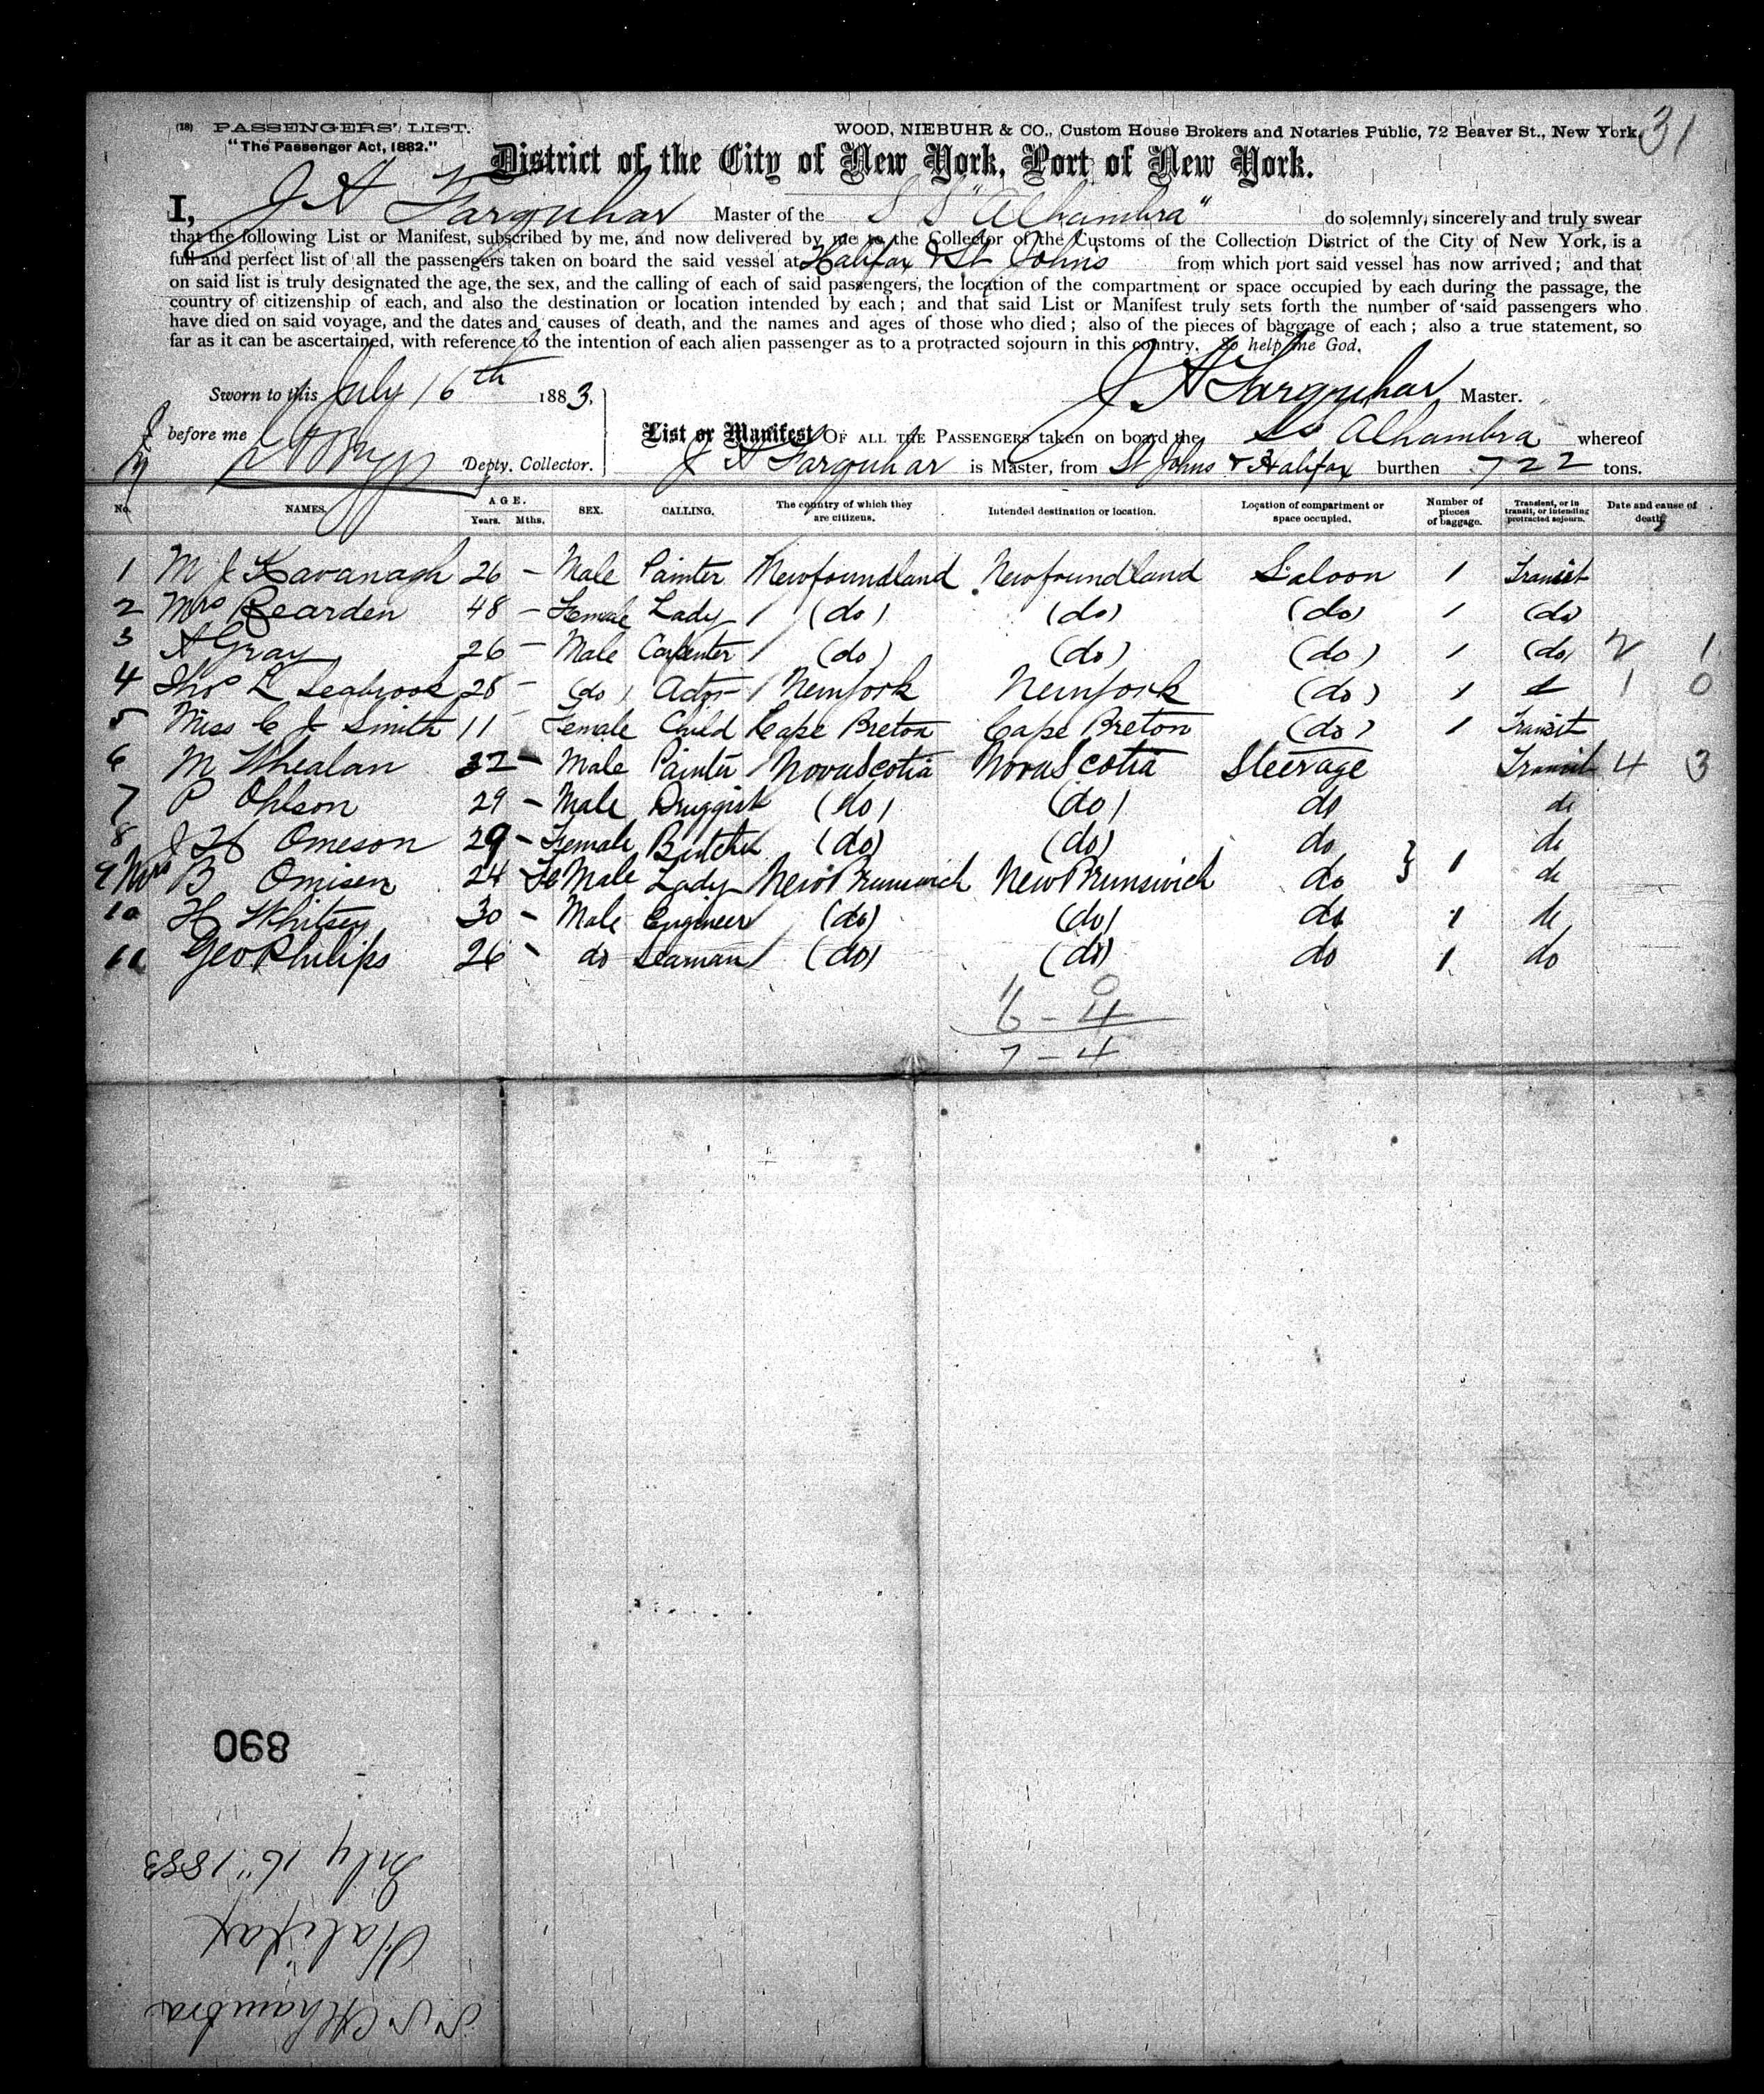 (18) PASSENGERS' LIST.
"The Passenger Act, 1882."
WOOD, NIEBUHR & CO., Custom House Brokers and Notaries Public, 72 Beaver St., New York.
31
District of the City of New York, Port of New York.
I, J A Farquhar Master of the S S "Alhambra" do solemnly, sincerely and truly swear
that the following List or Manifest, subscribed by me, and now delivered by me to the Collector of the Customs of the Collection District of the City of New York, is a
full and perfect list of all the passengers taken on board the said vessel at Halifax & St Johns from which port said vessel has now arrived; and that
on said list is truly designated the age, the sex, and the calling of each of said passengers, the location of the compartment or space occupied by each during the passage, the
country of citizenship of each, and also the destination or location intended by each; and that said List or Manifest truly sets forth the number of said passengers who
have died on said voyage, and the dates and causes of death, and the names and ages of those who died; also of the pieces of baggage of each; also a true statement, so
far as it can be ascertained, with reference to the intention of each alien passenger as to a protracted sojourn in this country. So help me God.
Sworn to this July 16th 1883, J A Farquhar Master.
before me Depty. Collector.
List or Manifest OF ALL THE PASSENGERS taken on board the SS Alhambra whereof
J A Farquhar is Master, from St Johns & Halifax burthen 722 tons.
No. NAMES. AGE. Years. Mths. SEX. CALLING. The country of which they are citizens. Intended destination or location. Location of compartment or space occupied. Number of pieces of baggage. Transient, or in transit, or intending protracted sojourn. Date and cause of death.
1 M J Kavanagh 26 - Male Painter Newfoundland Newfoundland Saloon 1 Transit
2 Mrs Rearden 48 - Female Lady / (do) (do) (do) 1 (do)
3 A Gray 26 - Male Carpenter / (do) (do) (do) 1 (do) 2 1
4 Thos L Seabrook 28 - (do) Actor / New York New York (do) 1 1 0
5 Miss C J Smith 11 - Female Child Cape Breton Cape Breton (do) 1 Transit
6 M Whealan 32 - Male Painter / Nova Scotia Nova Scotia Steerage Transit 4 3
7 P Ohlson 29 - Male Druggist (do) (do) do do
8 J H Omeson 29 - Female Butcher (do) (do) do do
9 Mrs B Omisen 24 - Fe Male Lady New Brunswick New Brunswick do } 1 do
10 H Whitsey 30 - Male Engineer / (do) (do) do 1 do
11 Geo Philips 26 - do Seaman / (do) (do) do 1 do
1 0
6 - 4
7 - 4
890
July 16" 1883
Halifax
S S Alhambra